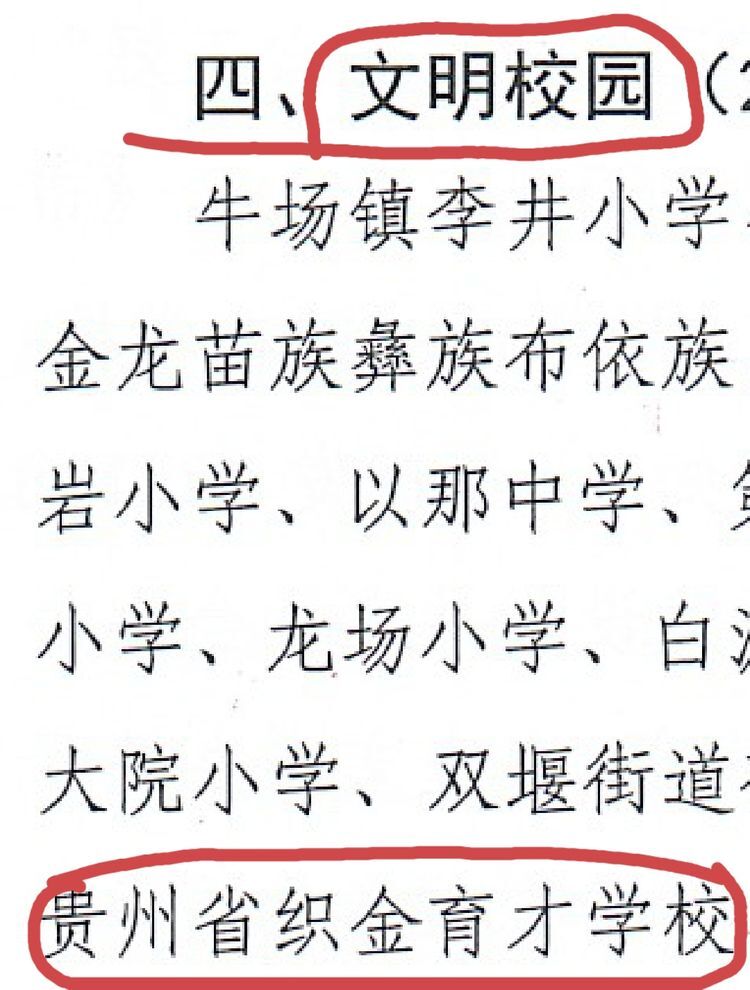 四、文明校园（2
牛场镇李井小学
金龙苗族彝族布依族
岩小学、以那中学、
小学、龙场小学、白
大院小学、双堰街道
贵州省织金育才学校